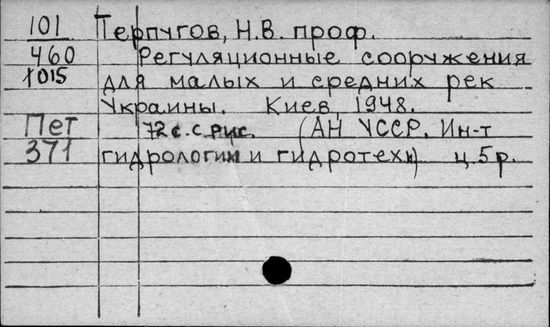 101 Перпугов, Н.В. проф.
460 Регуляционные сооружения
1015 для малых и средних рек
Украины. Киев, 1948.
Пет 72 с. с рис. (АН УССР. Ин-т
371 гидрологии и гидротехн) ц. 5 р.